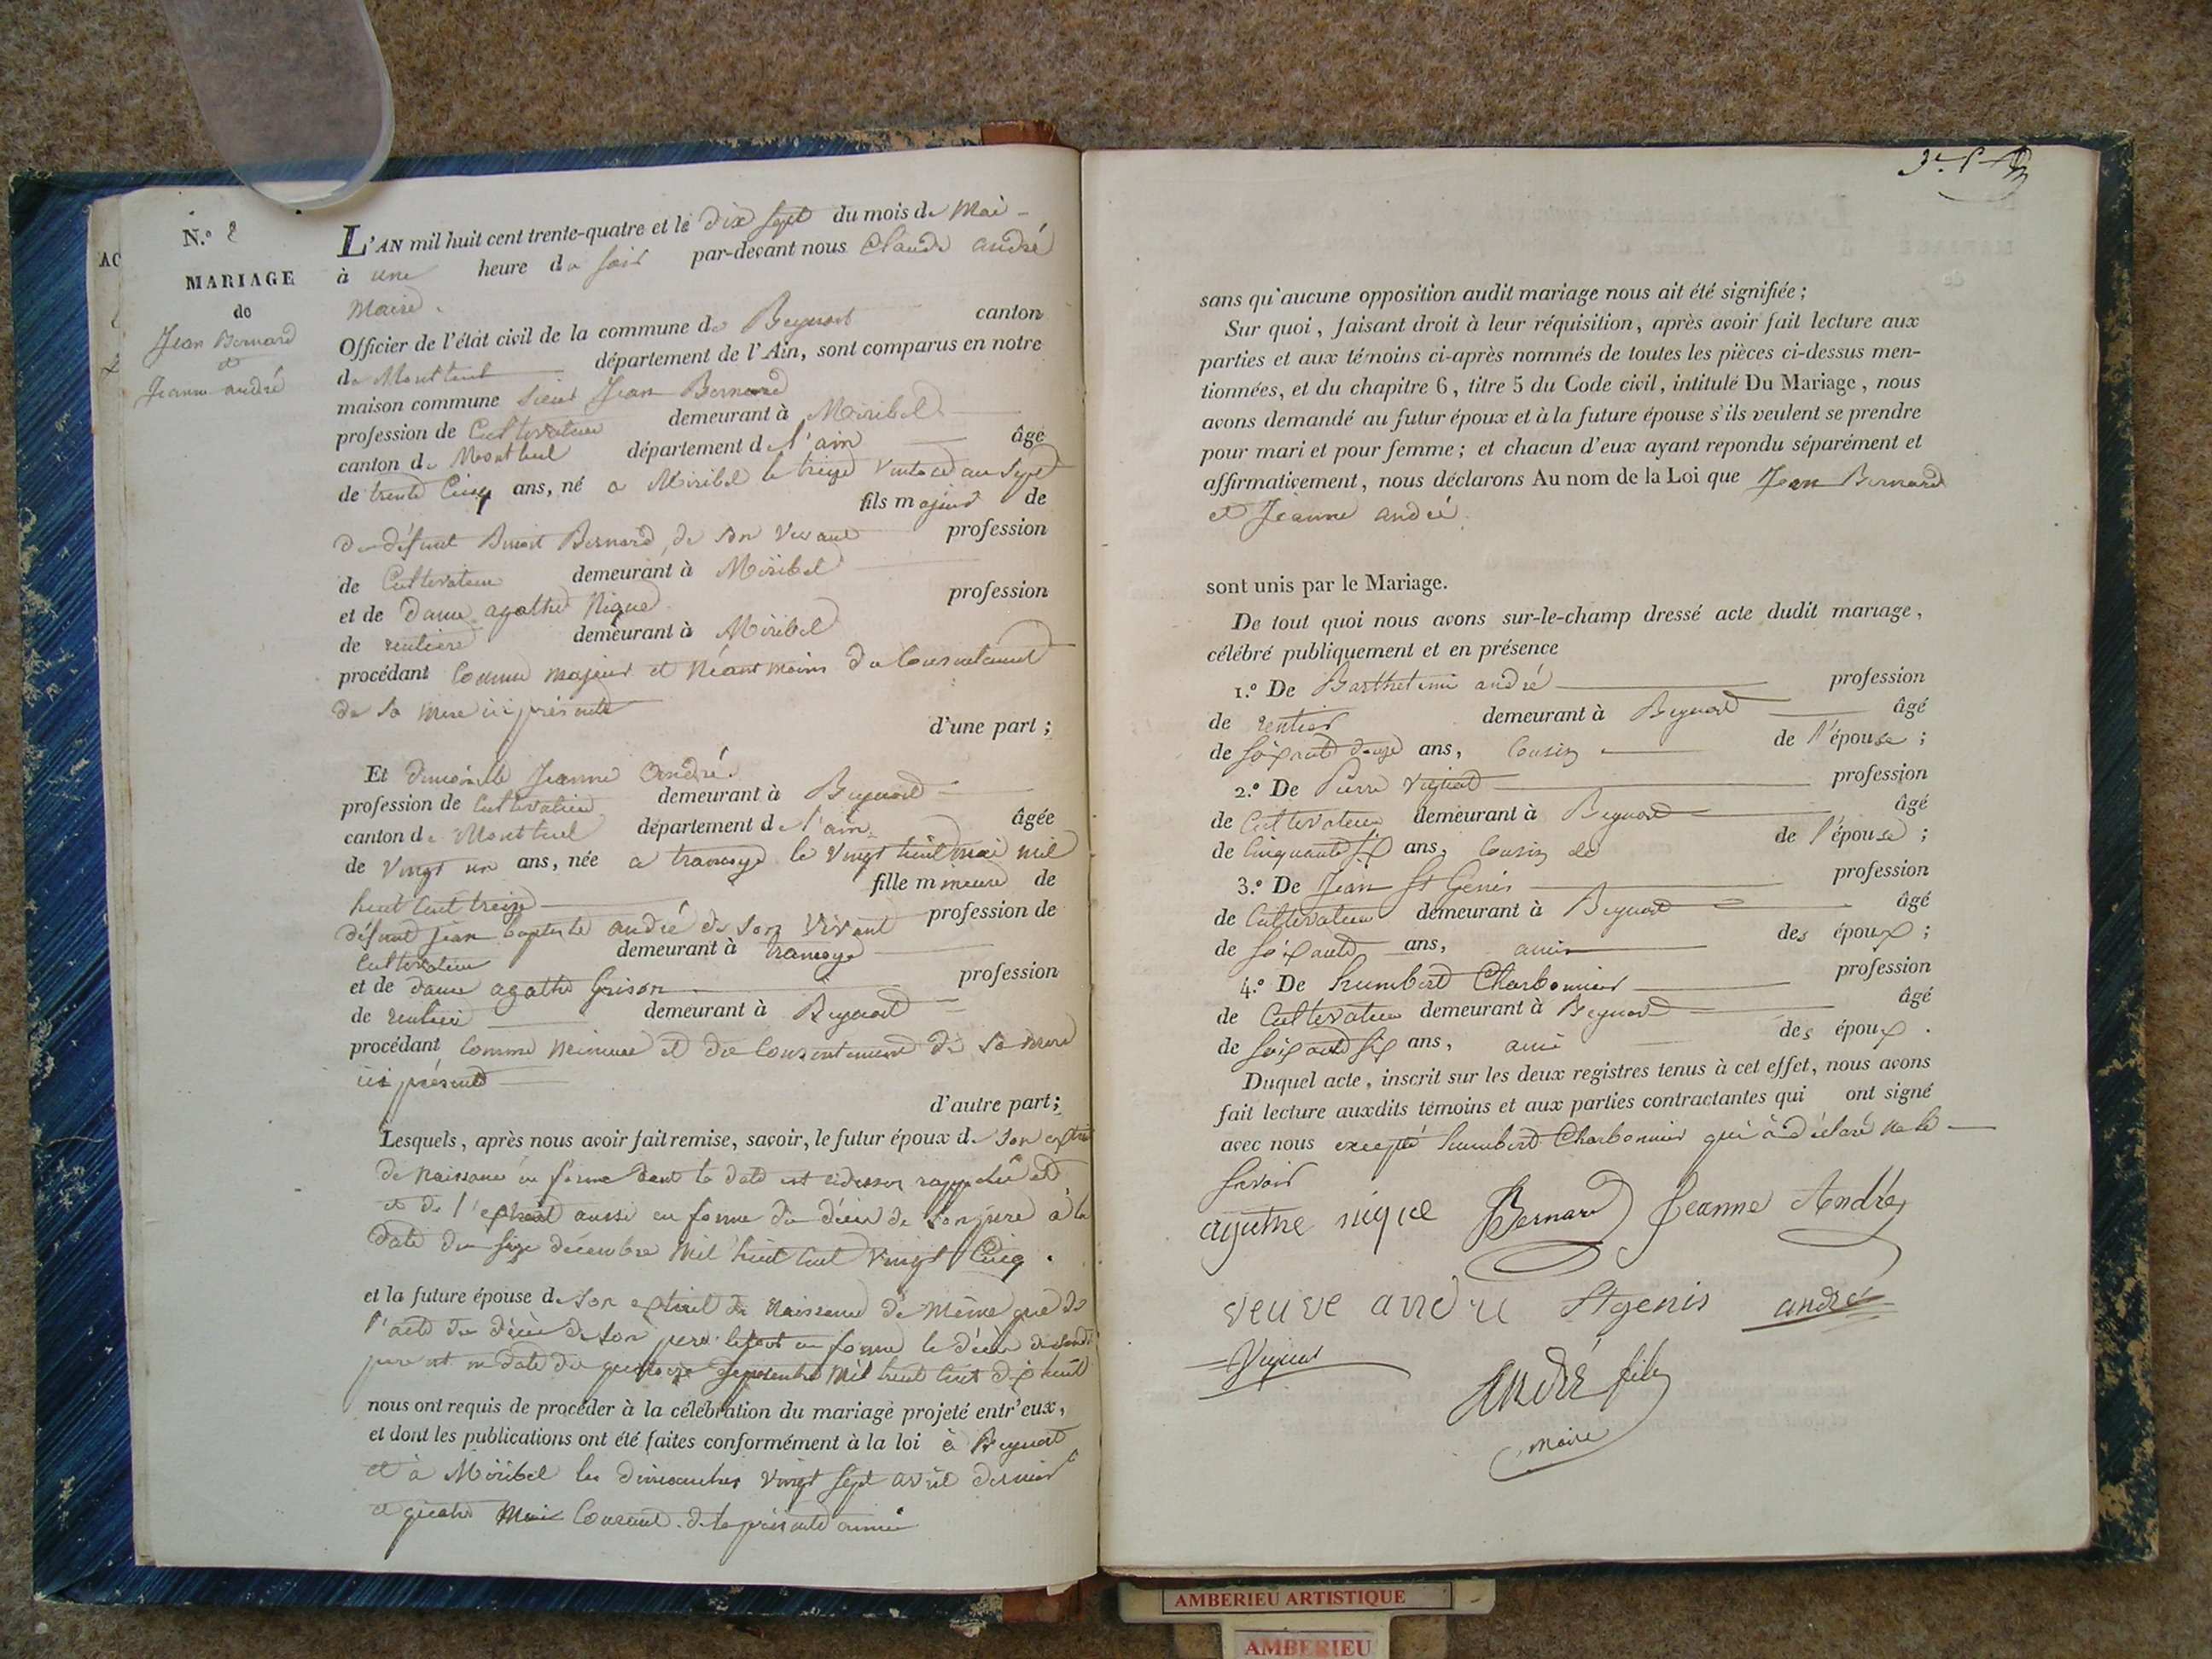 N.º 2
MARIAGE
de
Jean Bernard
et
Jeanne andré
AC
L'AN mil huit cent trente-quatre et le dix sept du mois de Mai
à une heure du soir par-devant nous Claude andré
Maire.
Officier de l'état civil de la commune de Beynost canton
de Montluel département de l'Ain, sont comparus en notre
maison commune sieur Jean Bernard
profession de Cultivateur demeurant à Miribel
canton de Montluel département de l'ain âgé
de trente Cinq ans, né a Miribel le treize ventose an Sept
fils majeur de
du défunt Benoit Bernard, de son Vivant profession
de Cultivateur demeurant à Miribel
et de dame agathe Nique profession
de rentiere demeurant à Miribel
procédant Comme Majeur et Néantmoins du Consentement
de sa Mere ici présente
d'une part ;
Et demoiselle Jeanne André.
profession de Cultivatrice demeurant à Beynost
canton de Montluel département de l'ain âgée
de Vingt un ans, née a tramoye le Vingt huit mai mil
huit Cent treize fille mineure de
défunt jean baptiste andré de son Vivant profession de
Cultivateur demeurant à tramoye
et de dame agathe Grison profession
de rentiere demeurant à Beynost
procédant Comme Mineure et du Consentement de sa mere
ici présente
d'autre part ;
Lesquels, après nous avoir fait remise, savoir, le futur époux de son extrait
de Naissance en forme dont la date est cidessus rappelée et
et de l'extrait aussi en forme du décès de son père à la
date du seize décembre Mil huit Cent Vingt Cinq.
et la future épouse de son extrait de Naissance de Même que de
l'acte du décès de son pere le tout en forme le décès de sondit
pere est en date du quatorze Mil huit Cent dix huit
nous ont requis de procéder à la célébration du mariage projeté entr'eux,
et dont les publications ont été faites conformément à la loi à Beynost
et à Miribel les dimanches Vingt Sept avril dernier
et quatre Mai Courant de la présente année
sans qu'aucune opposition audit mariage nous ait été signifiée ;
Sur quoi, faisant droit à leur réquisition, après avoir fait lecture aux
parties et aux témoins ci-après nommés de toutes les pièces ci-dessus men-
tionnées, et du chapitre 6, titre 5 du Code civil, intitulé Du Mariage, nous
avons demandé au futur époux et à la future épouse s'ils veulent se prendre
pour mari et pour femme ; et chacun d'eux ayant repondu séparément et
affirmativement, nous déclarons Au nom de la Loi que Jean Bernard
et Jeanne andré.
sont unis par le Mariage.
De tout quoi nous avons sur-le-champ dressé acte dudit mariage,
célébré publiquement et en présence
1.º De Barthelemi andré profession
de rentier demeurant à Beynost âgé
de soixante douze ans, Cousin de l'épouse ;
2.º De Pierre Vignat profession
de Cultivateur demeurant à Beynost âgé
de Cinquante six ans, Cousin de de l'épouse ;
3.º De Jean St Genis profession
de Cultivateur demeurant à Beynost âgé
de soixante ans, amis des époux ;
4.º De humbert Charbonnier profession
de Cultivateur demeurant à Beynost âgé
de soixante six ans, ami des époux.
Duquel acte, inscrit sur les deux registres tenus à cet effet, nous avons
fait lecture auxdits témoins et aux parties contractantes qui ont signé
avec nous excepté humbert Charbonnier qui à déclaré ne le
Savoir
agathe nique Bernard Jeanne André
veuve andre Stgenis andré
Vignat
ANDRÉ fils
maire
AMBERIEU ARTISTIQUE
AMBERIEU